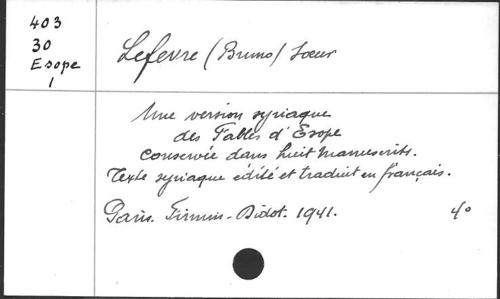 403
30
Esope
1
Lefevre (Bruno) Soeur
Une version syriaque
des Fables d'Esope
conservée dans huit manuscrits.
Texte syriaque édité et traduit en français.
Paris. Firmin-Didot. 1941. 4°